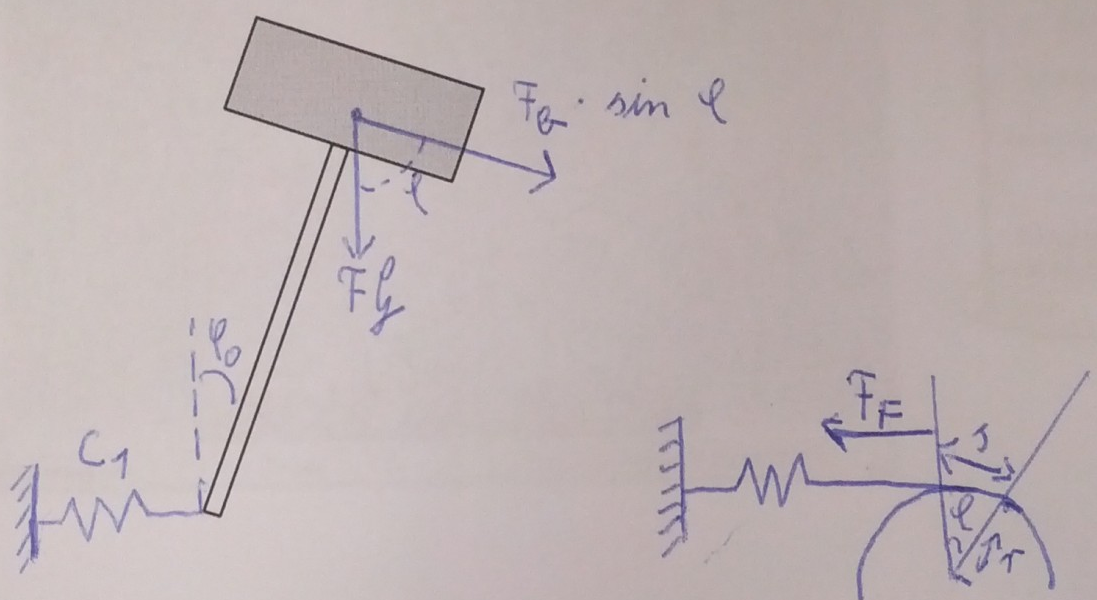 F_G · sin φ
φ
F_G
φ₀
C₁
F_F
s
φ
r